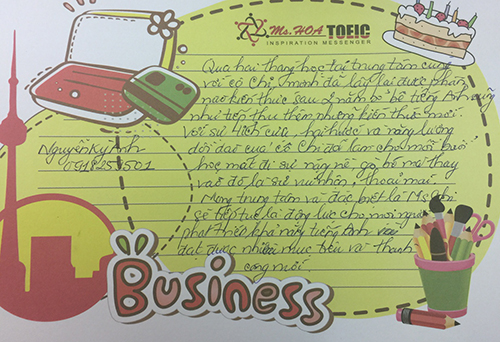 Ms. HOA TOEIC
INSPIRATION MESSENGER
Qua hai tháng học tại trung tâm cùng
với cô Chi, mình đã lấy lại được phần
nào kiến thức sau 2 năm bỏ bê tiếng Anh cũng
như tiếp thu thêm những kiến thức mới.
Với sự tích cực, hài hước và năng lượng
dồi dào của cô Chi đã làm cho mỗi buổi
học mất đi sự nặng nề, gò bó mà thay
vào đó là sự vui nhộn, thoải mái.
Mong trung tâm và đặc biệt là Ms Chi
sẽ tiếp tục là động lực cho mọi người
phát triển khả năng tiếng Anh
đạt được nhiều mục tiêu và thành
công mới.
Nguyễn Kỳ Anh
BUSINESS